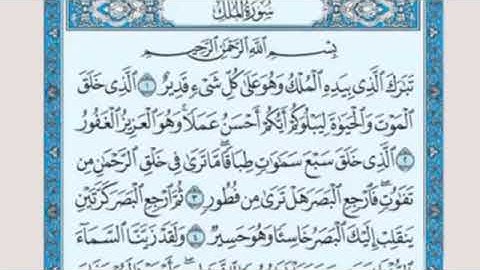 سُورَةُ المُلْكِ
بِسْمِ ٱللَّهِ ٱلرَّحْمَٰنِ ٱلرَّحِيمِ
تَبَٰرَكَ ٱلَّذِى بِيَدِهِ ٱلْمُلْكُ وَهُوَ عَلَىٰ كُلِّ شَىْءٍ قَدِيرٌ ١ ٱلَّذِى خَلَقَ
ٱلْمَوْتَ وَٱلْحَيَوٰةَ لِيَبْلُوَكُمْ أَيُّكُمْ أَحْسَنُ عَمَلًا وَهُوَ ٱلْعَزِيزُ ٱلْغَفُورُ
٢ ٱلَّذِى خَلَقَ سَبْعَ سَمَٰوَٰتٍ طِبَاقًا مَّا تَرَىٰ فِى خَلْقِ ٱلرَّحْمَٰنِ مِن
تَفَٰوُتٍ فَٱرْجِعِ ٱلْبَصَرَ هَلْ تَرَىٰ مِن فُطُورٍ ٣ ثُمَّ ٱرْجِعِ ٱلْبَصَرَ كَرَّتَيْنِ
يَنقَلِبْ إِلَيْكَ ٱلْبَصَرُ خَاسِئًا وَهُوَ حَسِيرٌ ٤ وَلَقَدْ زَيَّنَّا ٱلسَّمَآءَ